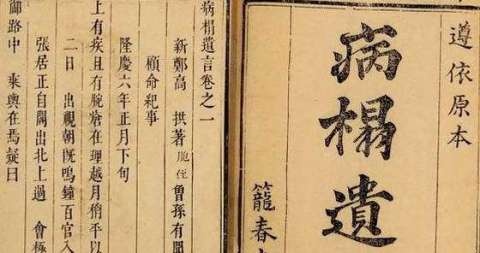 遵依原本
病榻遺
籠春
病榻遺言卷之一
新鄭高 拱著 胞侄曾孫有聞
顧命紀事
隆慶六年正月下旬
上有疾且有腕瘡在理越月稍平以
二日 出視朝旣鳴鐘百官入
張居正自閣出北上過 會極
御路中 乘輿在焉疑曰